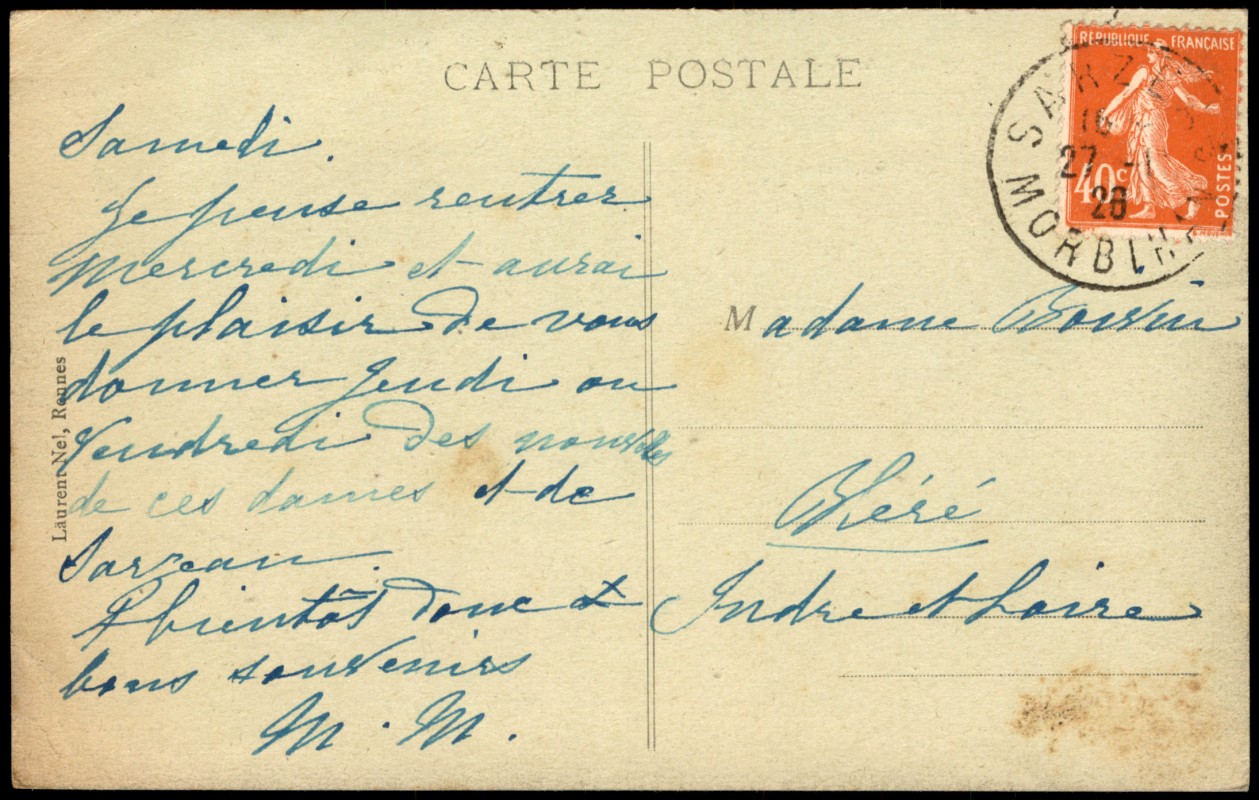 CARTE POSTALE
Samedi.
Je pense rentrer
Mercredi et aurai
le plaisir de vous
donner Jeudi ou
Vendredi des nouvelles
de ces dames et de
Sarzeau
A bientôt donc &
bons souvenirs
M. M.
Laurent Nel, Rennes
RÉPUBLIQUE FRANÇAISE
POSTES
40c
SARZEAU
16
27 - 1
26
MORBIHAN
Madame
Indre et Loire